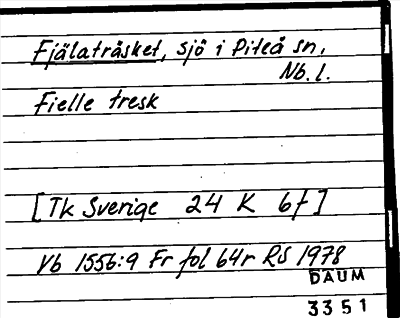 Fjälaträsket, sjö i Piteå sn,
Nb. l.
Fielle tresk
[Tk Sverige 24 K 6f]
Vb 1556:9 Fr fol 64r RS 1978
DAUM
3351